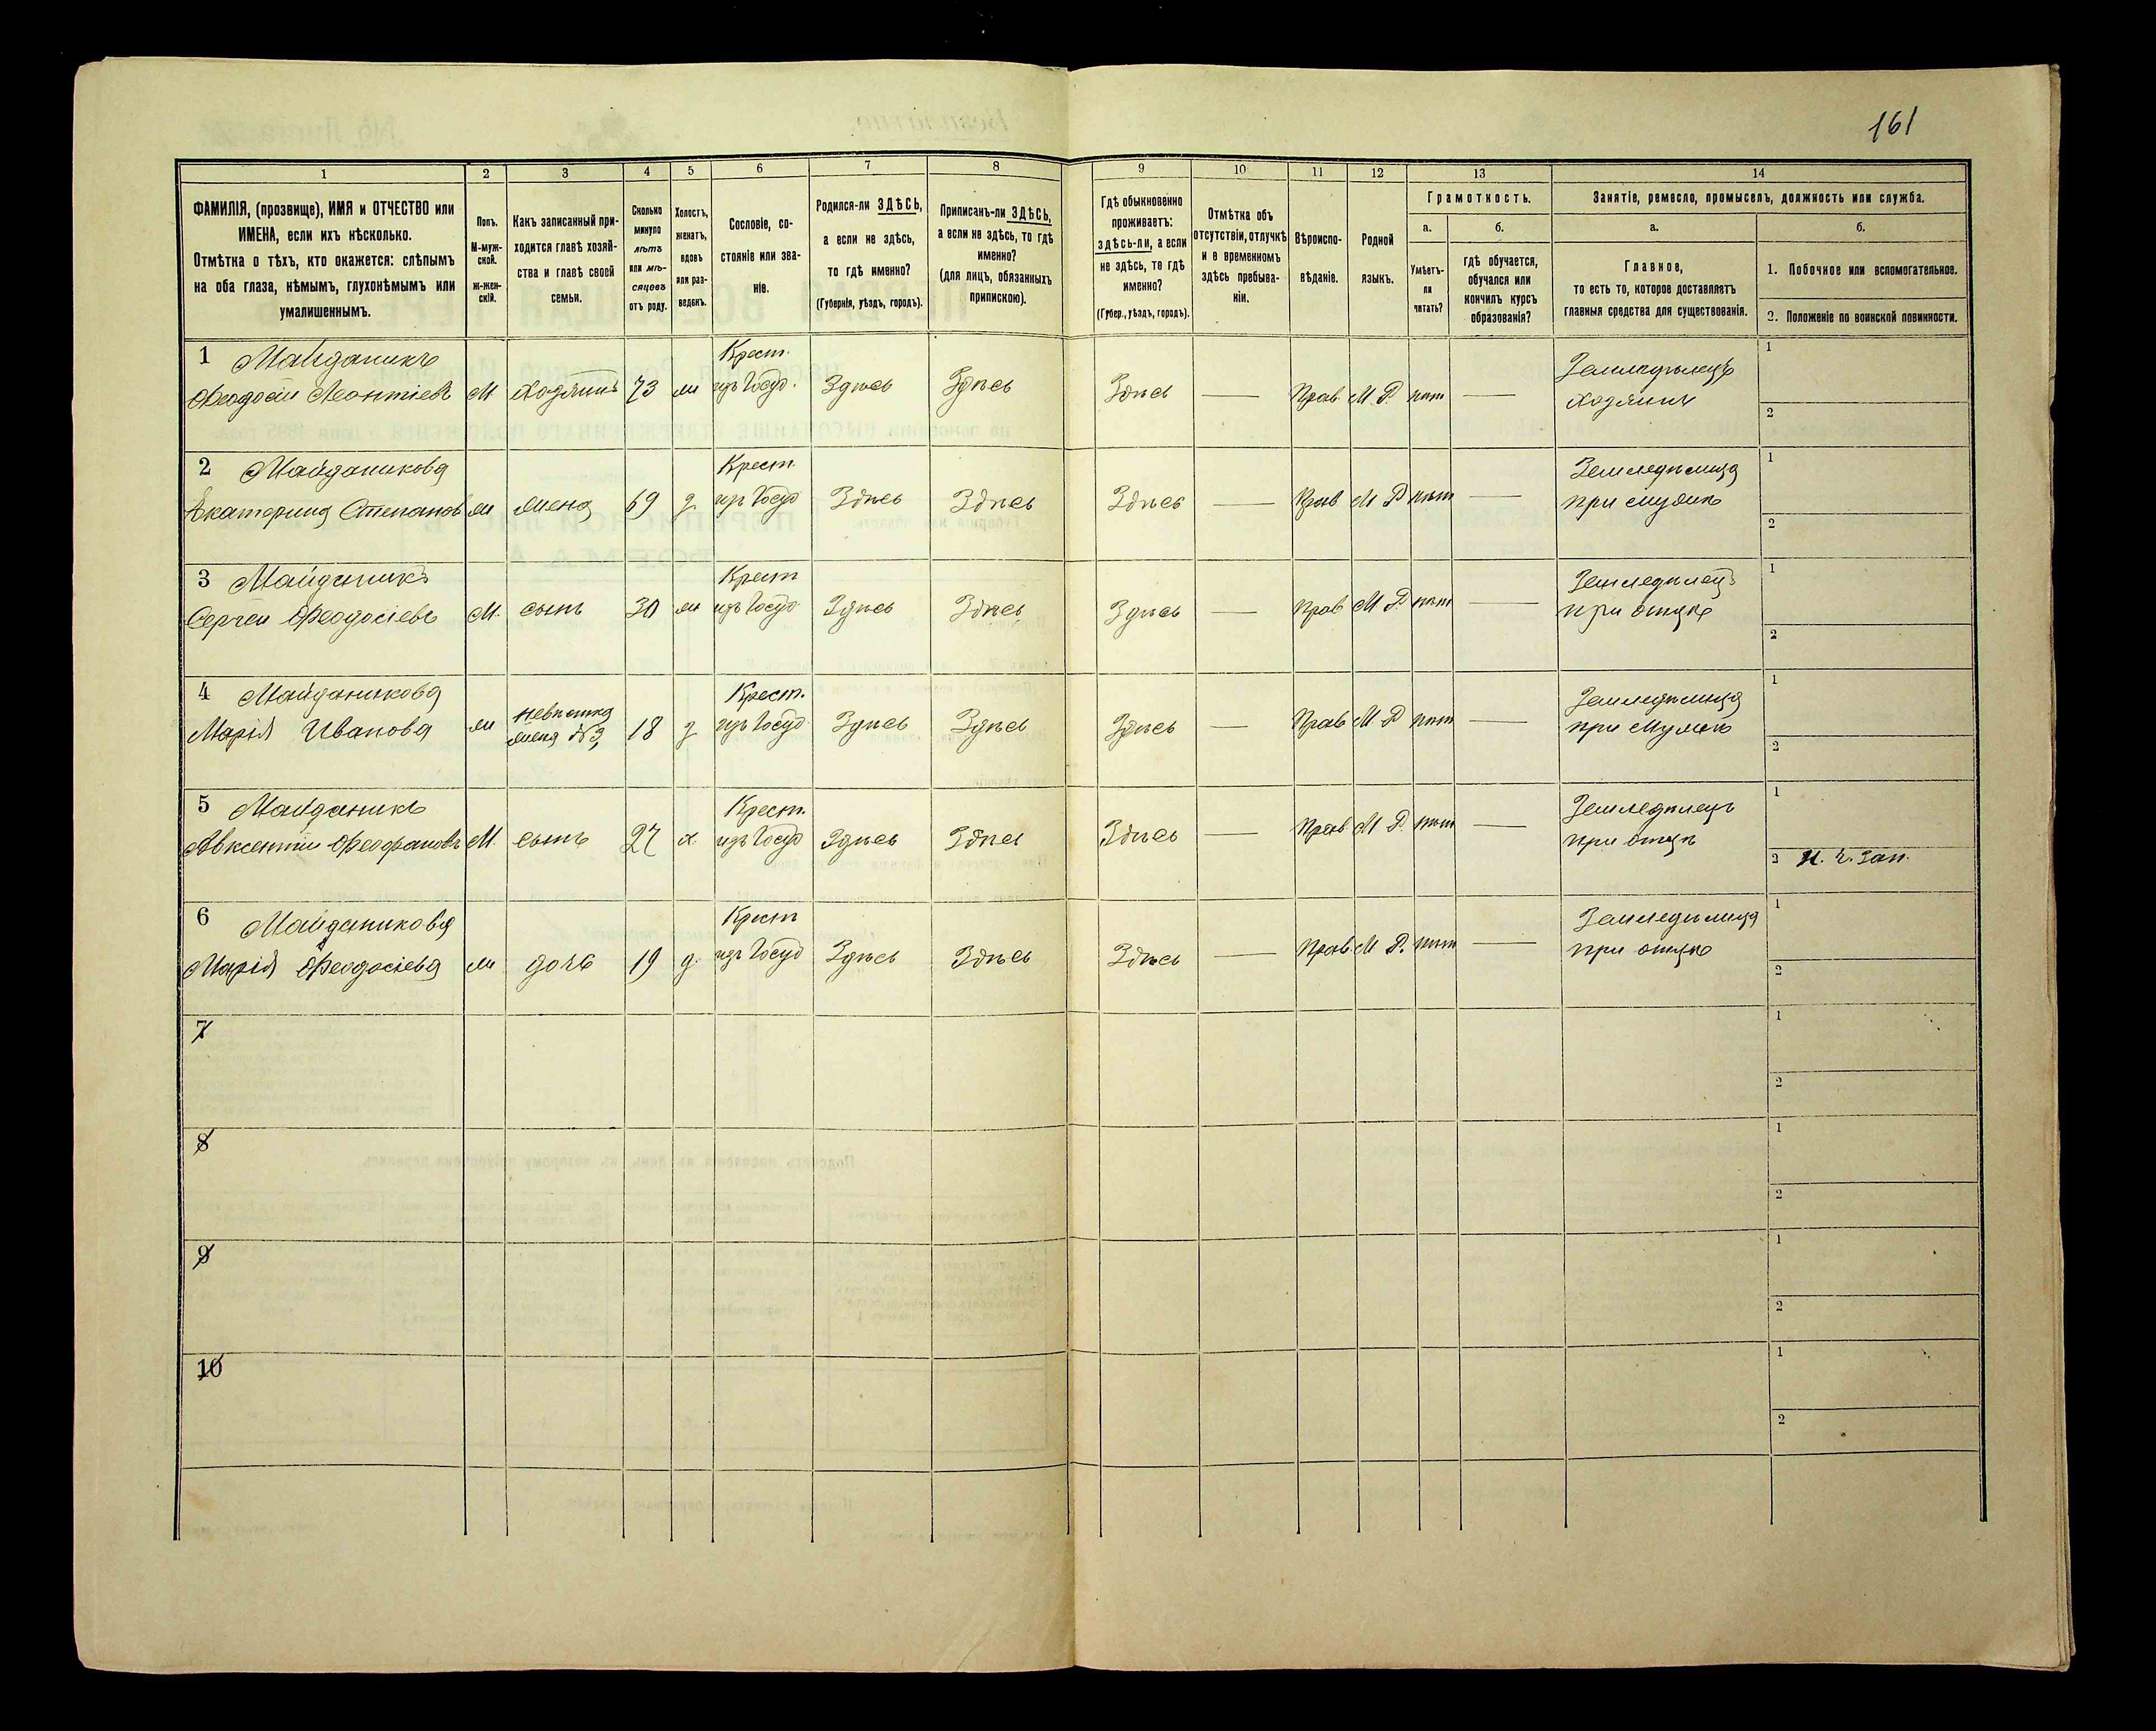 161
1 2 3 4 5 6 7 8 9 10 11 12 13 14
ФАМИЛІЯ, (прозвище), ИМЯ и ОТЧЕСТВО или
ИМЕНА, если ихъ нѣсколько.
Отмѣтка о тѣхъ, кто окажется: слѣпымъ
на оба глаза, нѣмымъ, глухонѣмымъ или
умалишеннымъ.
Полъ.
М-муж-
ской.
Ж-жен-
скій.
Какъ записанный при-
ходится главѣ хозяй-
ства и главѣ своей
семьи.
Сколько
минуло
лѣтъ
или мѣ-
сяцевъ
отъ роду.
Холостъ,
женатъ,
вдовъ
или раз-
веденъ.
Сословіе, со-
стояніе или зва-
ніе.
Родился-ли ЗДѢСЬ,
а если не здѣсь,
то гдѣ именно?
(Губернія, уѣздъ, городъ).
Приписанъ-ли ЗДѢСЬ,
а если не здѣсь, то гдѣ
именно?
(для лицъ, обязанныхъ
припискою).
Гдѣ обыкновенно
проживаетъ:
здѣсь-ли, а если
не здѣсь, то гдѣ
именно?
(Губер., уѣздъ, городъ).
Отмѣтка объ
отсутствіи, отлучкѣ
и о временномъ
здѣсь пребыва-
ніи.
Вѣроиспо-
вѣданіе.
Родной
языкъ.
Грамотность.
а.
Умѣетъ-
ли
читать?
б.
гдѣ обучается,
обучался или
кончилъ курсъ
образованія?
Занятіе, ремесло, промыселъ, должность или служба.
а.
Главное,
то есть то, которое доставляетъ
главныя средства для существованія.
б.
1. Побочное или вспомогательное.
2. Положеніе по воинской повинности.
1 Майданикъ Крест. Земледѣлецъ 1
Феодосій Леонтіевъ М хозяинъ 73 ж изъ Госуд. Здѣсь Здѣсь Здѣсь — Прав М. Р. нѣт — хозяинъ 2
2 Майданикова Крест. Земледѣлица 1
Екатерина Степанов ж жена 69 з изъ Госуд Здѣсь Здѣсь Здѣсь — Прав М Р нѣт — при мужѣ 2
3 Майданикъ Крест Земледѣлецъ 1
Сергей Феодосіевъ М. сынъ 30 ж изъ Госуд Здѣсь Здѣсь Здѣсь — Прав М Р. нѣт — при отцѣ 2
4 Майданикова невѣстка Крест. Земледѣлица 1
Марія Иванова ж жена №3, 18 з изъ Госуд Здѣсь Здѣсь Здѣсь — Прав М. Р нѣт — при мужѣ 2
5 Майданикъ Крест. Земледѣлецъ 1
Авксентій М. сынъ 27 х. изъ Госуд Здѣсь Здѣсь Здѣсь — Прав М Р. нѣт — при отцѣ 2
6 Майданикова Крест Земледѣлица 1
Марія Феодосіева ж дочь 19 д. изъ Госуд Здѣсь Здѣсь Здѣсь — Прав М Р. нѣт — при отцѣ 2
7 1
2
8 1
2
9 1
2
10 1
2